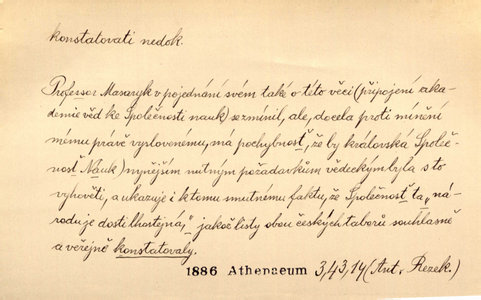 konstatovati nedok.
Professor Masaryk v pojednání svém také o této věci (připojení aka-
demie věd ke Společnosti nauk) se zmínil, ale, docela proti mínění
mému právě vyslovenému, má pochybnosť, že by královská Společ-
nosť Nauk) nynějším nutným požadavkům vědeckým byla s to
vyhověti, a ukazuje i k tomu smutnému faktu, že Společnosť ta „ná-
rodu je dosti lhostejná," jakož listy obou českých táborů souhlasně
a veřejně konstatovaly.
1886 Athenaeum 3,43,14 (Ant. Rezek.)